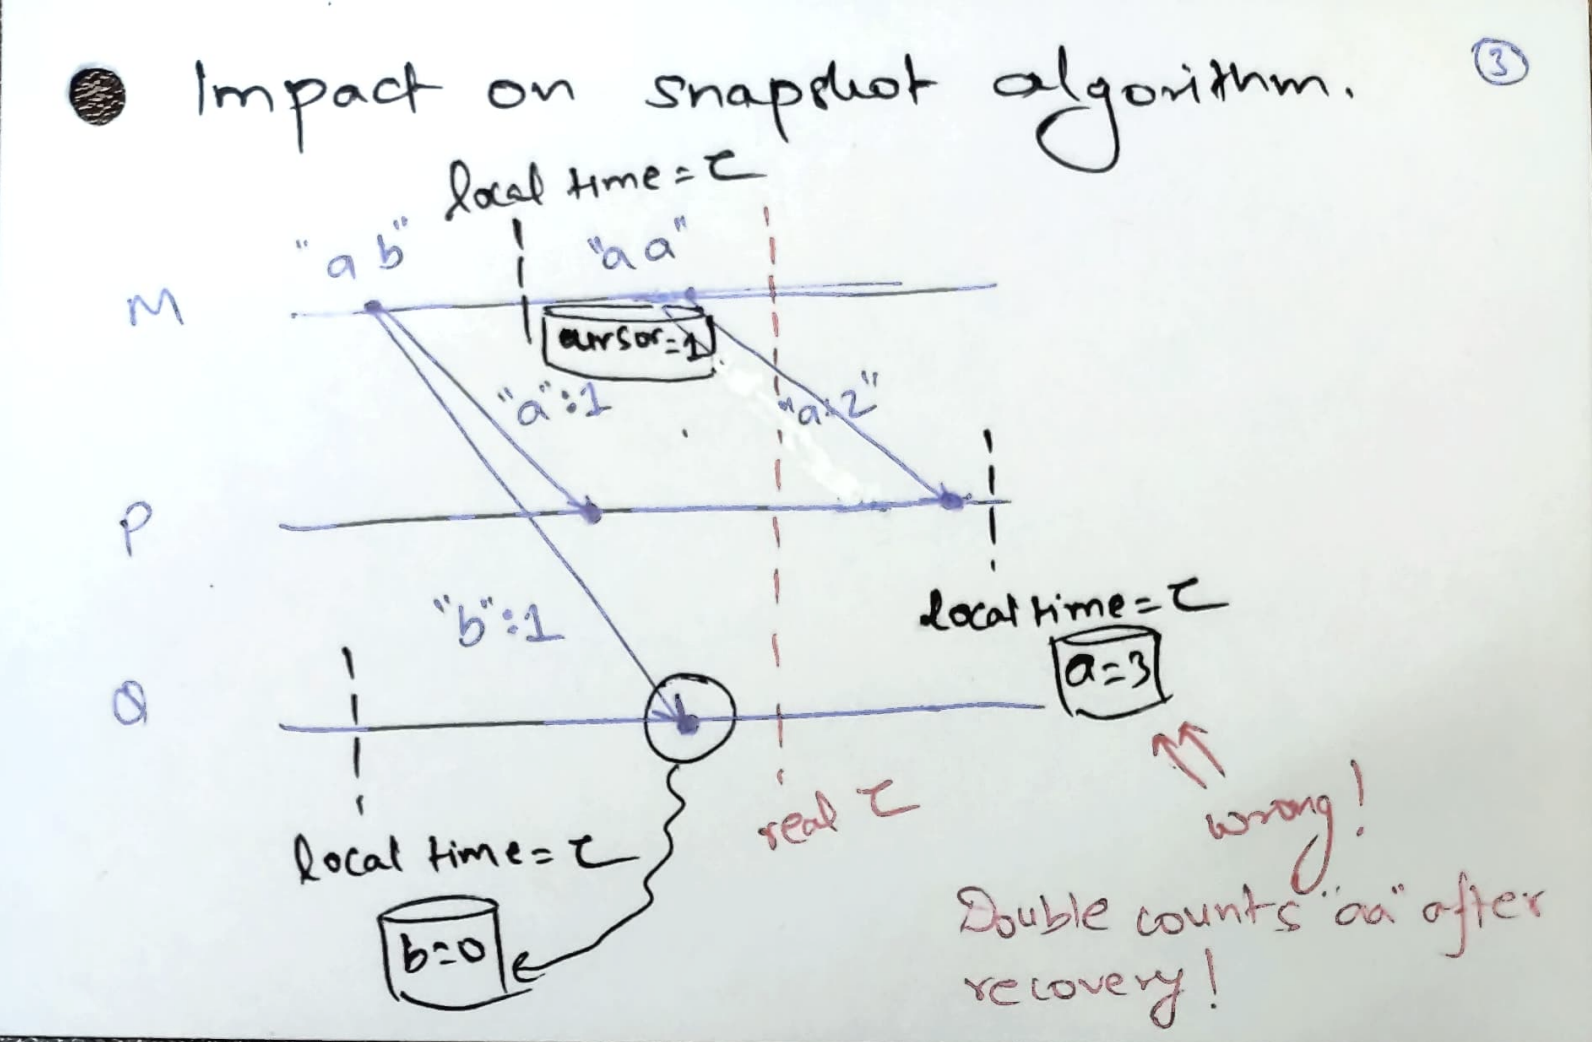 Impact on snapshot algorithm.
3
local time = τ
"a b"
"a a"
M
cursor=1
"a":1
"a:2"
P
local time = τ
"b":1
a=3
Q
real τ
wrong!
local time = τ
Double counts "aa" after
recovery!
b=0